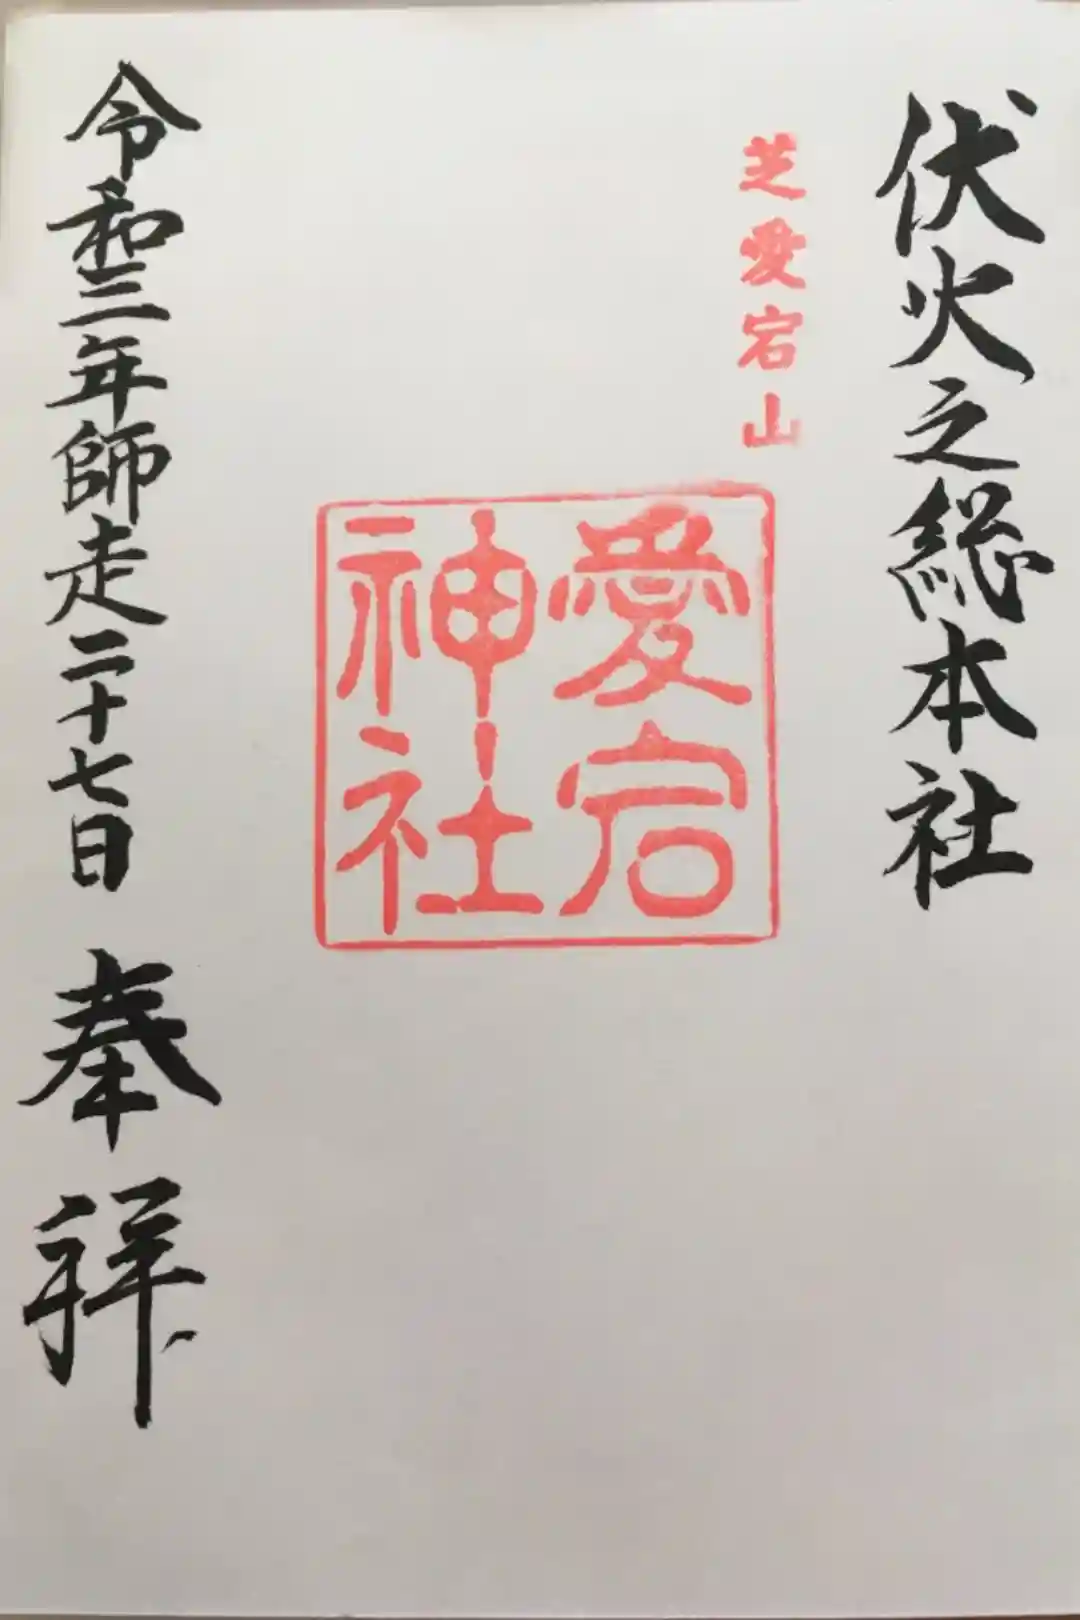 伏火之総本社
芝愛宕山
愛宕
神社
令和三年師走二十七日 奉拝